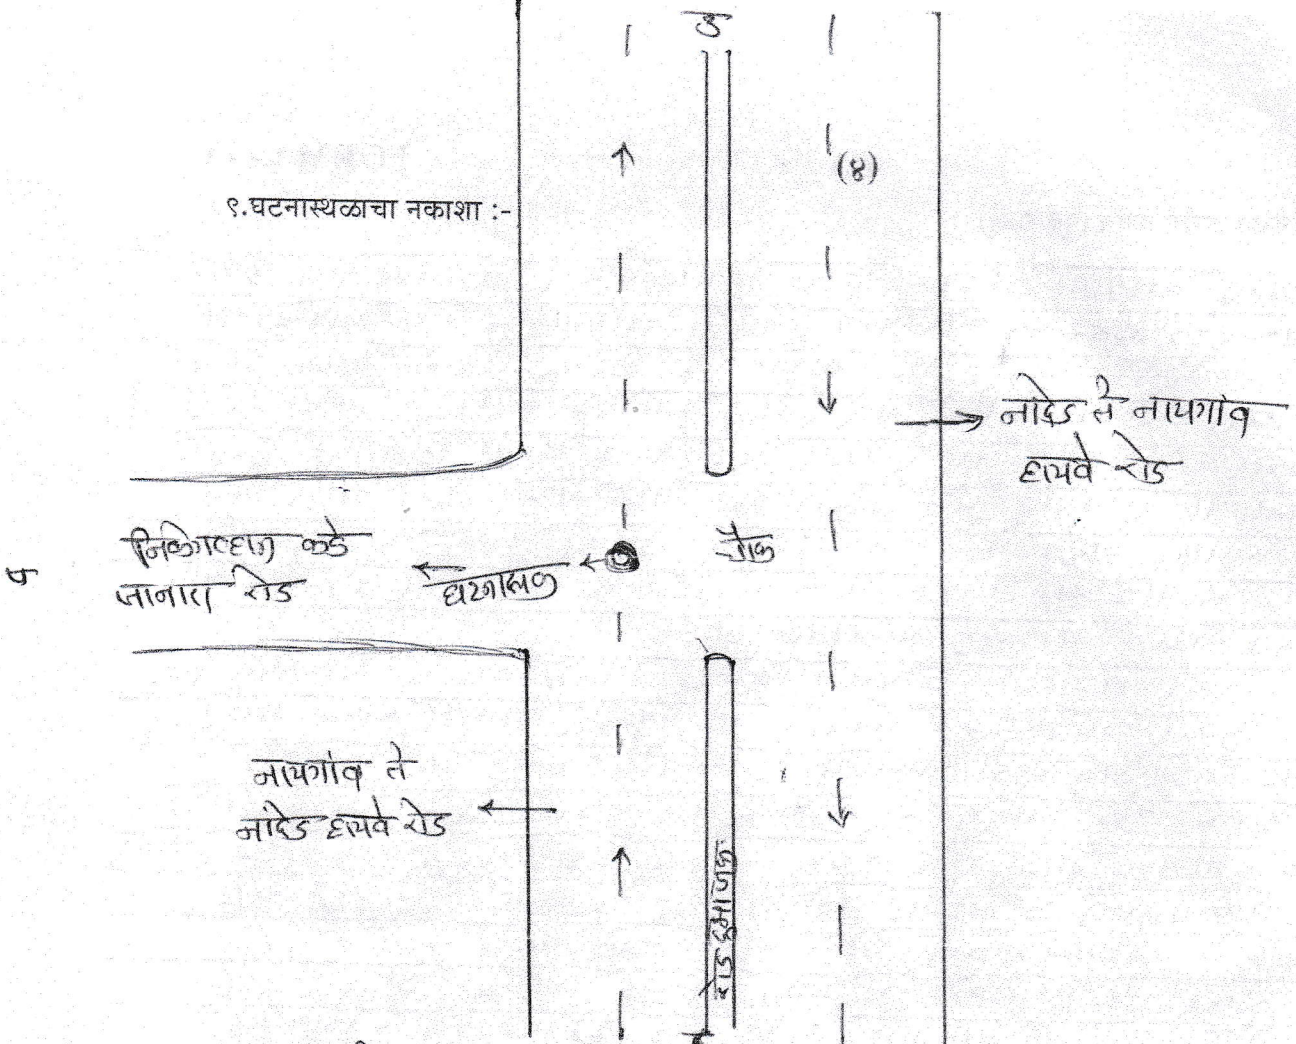 उ
(४)
९.घटनास्थळाचा नकाशा :-
नांदेड ते नायगांव
हायवे रोड
कडे
जानारा रोड
घटनास्थळ
चौक
प
नायगांव ते
नांदेड हायवे रोड
रोड दुभाजक